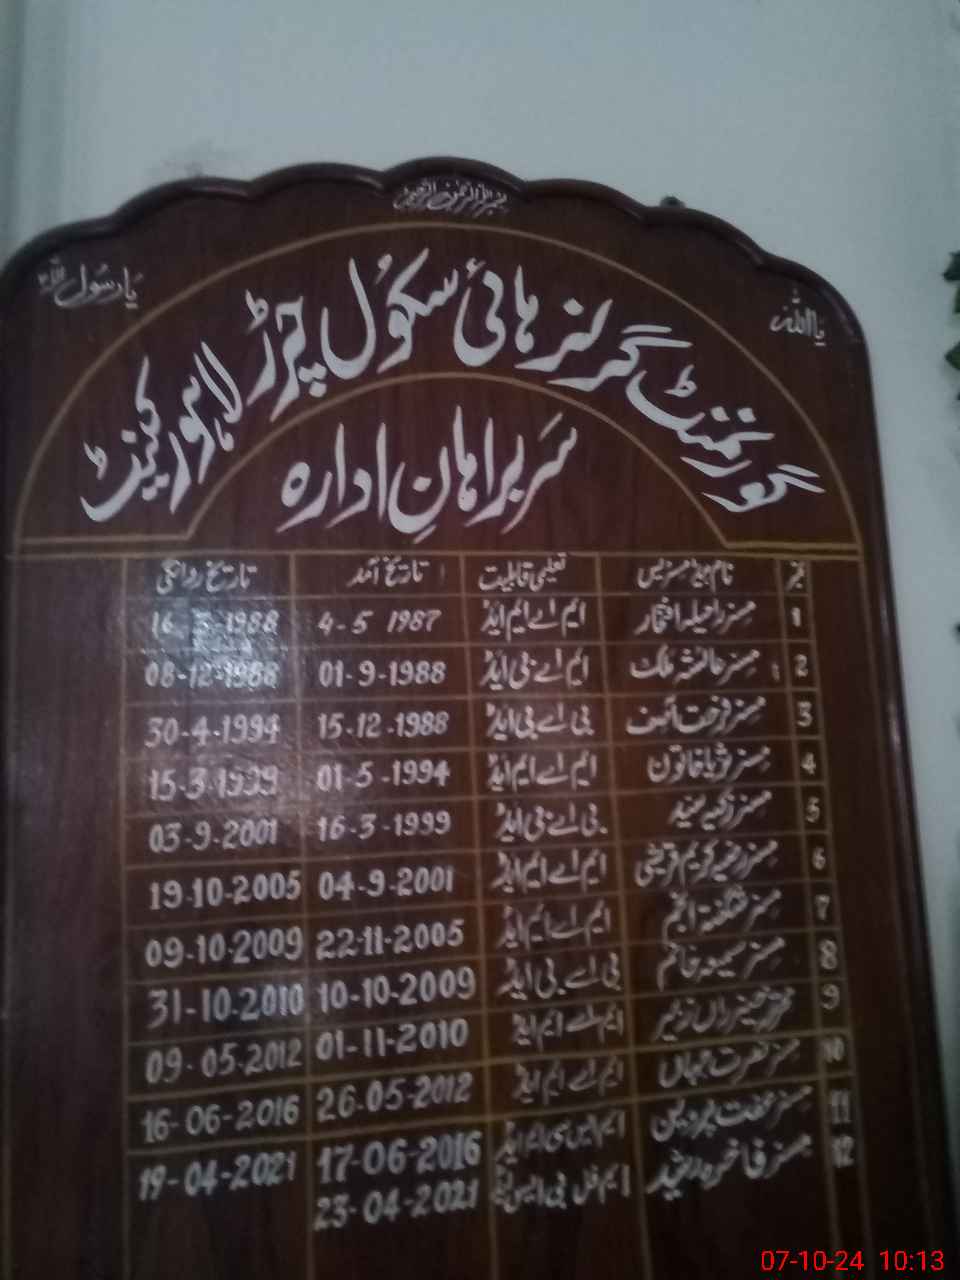 بسم اللہ الرحمن الرحیم
یا اللہ
یا رسول اللہ
گورنمنٹ گرلز ہائی سکول چرڑ لاہور کینٹ
سربراہانِ ادارہ
نمبر نام ہیڈ مسٹریس تعلیمی قابلیت تاریخ آمد تاریخ روانگی
1 مسز راحیلہ افتخار ایم اے ایم ایڈ 4-5 1987 1988
2 مسز عائشہ ملک ایم اے بی ایڈ 01-9-1988 08-12-1988
3 مسز فرحت آصف بی اے بی ایڈ 15-12-1988 30-4-1994
4 مسز ثریا خاتون ایم اے ایم ایڈ 01-5-1994 15-3-1999
5 مسز بی اے بی ایڈ 16-3-1999 03-9-2001
6 مسز رضیہ کریم قریشی ایم اے ایم ایڈ 04-9-2001 19-10-2005
7 مسز شگفتہ انجم ایم اے ایم ایڈ 22-11-2005 09-10-2009
8 مسز خانم بی اے بی ایڈ 10-10-2009 31-10-2010
9 ایم اے ایم ایڈ 01-11-2010 09-05-2012
10 مسز نصرت جہاں ایم اے ایم ایڈ 26-05-2012 16-06-2016
11 مسز عفت پروین ایم ایس سی ایم ایڈ 17-06-2016 19-04-2021
12 مسز فاخرہ رشید ایم فل 23-04-2021
07-10-24 10:13